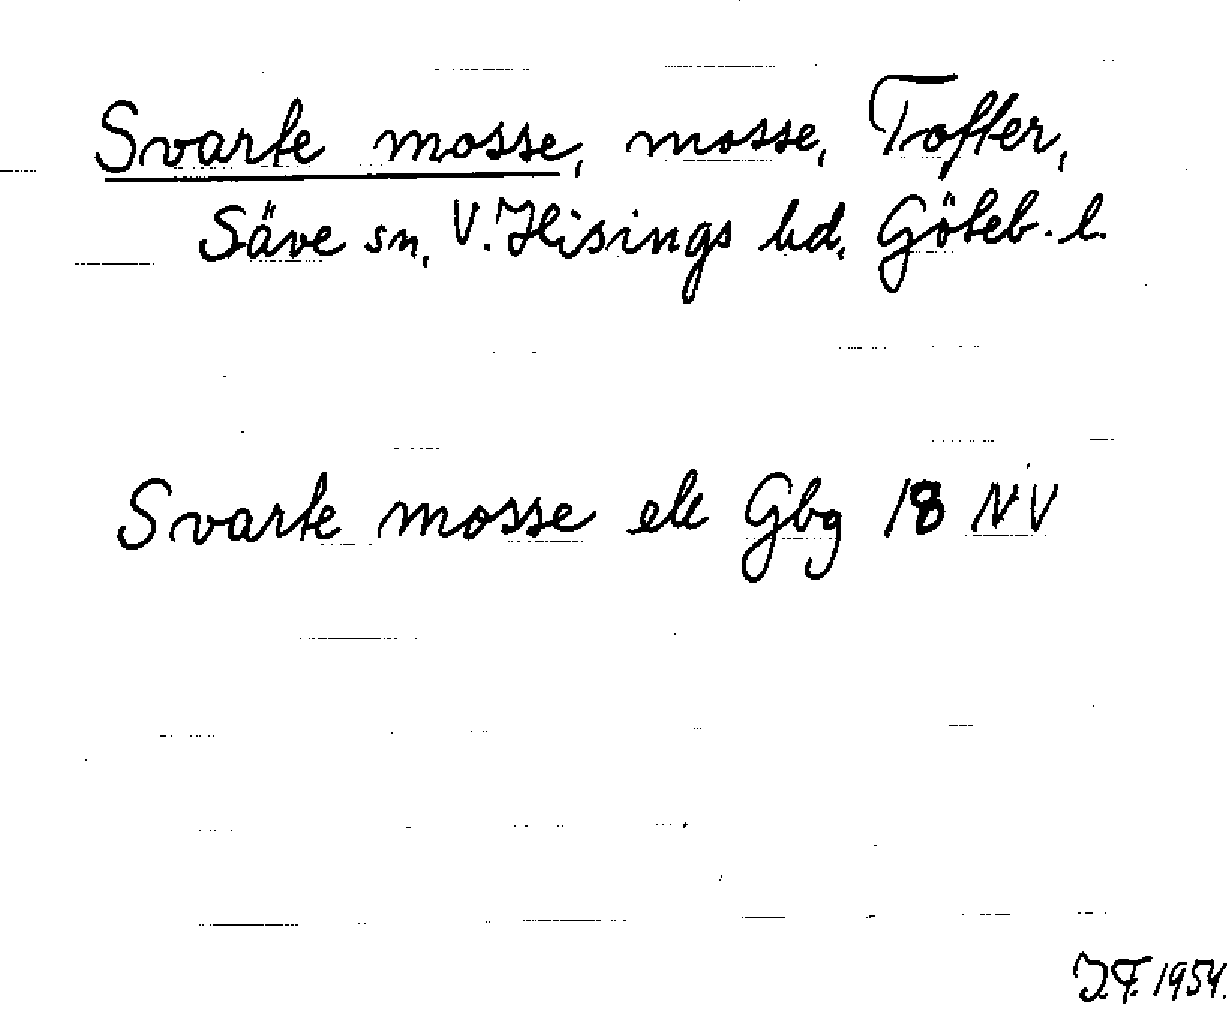 Svarte mosse, mosse, Tofter,
Säve sn, V. Hisings hd, Göteb. l.
Svarte mosse ek Gbg 18 NV
J.F. 1954.